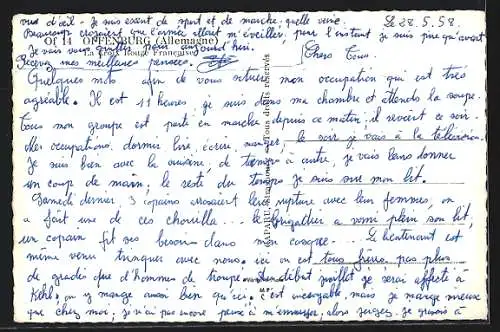 vue d'œil - Je suis exempt de sport et de marche, quelle veine.
Le 28.5.58.
Beaucoup croient que l'armée allait m'éveiller, pour l'instant je suis pire qu'avant
Of 14 OFFENBURG (Allemagne)
La Croix Rouge Française
Je vais vous quitter pour aujourd'hui.
Recevez mes meilleures pensées.
Chers Tous.
Quelques mots afin de vous situer mon occupation qui est très
agréable. Il est 11 heures, je suis dans ma chambre et attends la soupe.
Tous mon groupe est parti en marche depuis ce matin, il revoit ce soir.
Mes occupations, dormir, lire, écrire, manger, le soir je vais à la télévision.
Je suis bien avec la cuisine, de temps à autre, je vais leurs donner
un coup de main, le reste du temps je suis sur mon lit.
Samedi dernier, 3 copains arrosaient leur rupture avec leur femmes, on
a fait une de ces chouille... le brigadier a vomi plein son lit,
un copain fit ses besoins dans mon casque... Le lieutenant est
même venu trinquer avec nous. ici on est tous frères, pas plus
de gradé que d'homme de troupe. Au début juillet je serai affecté à
Kehl, on y mange aussi bien qu'ici. c'est incroyable, mais je mange mieux
que chez moi; je n'ai pas encore pensé à m'ennuyer, alors jugez. Je grossis à
tous droits réservés